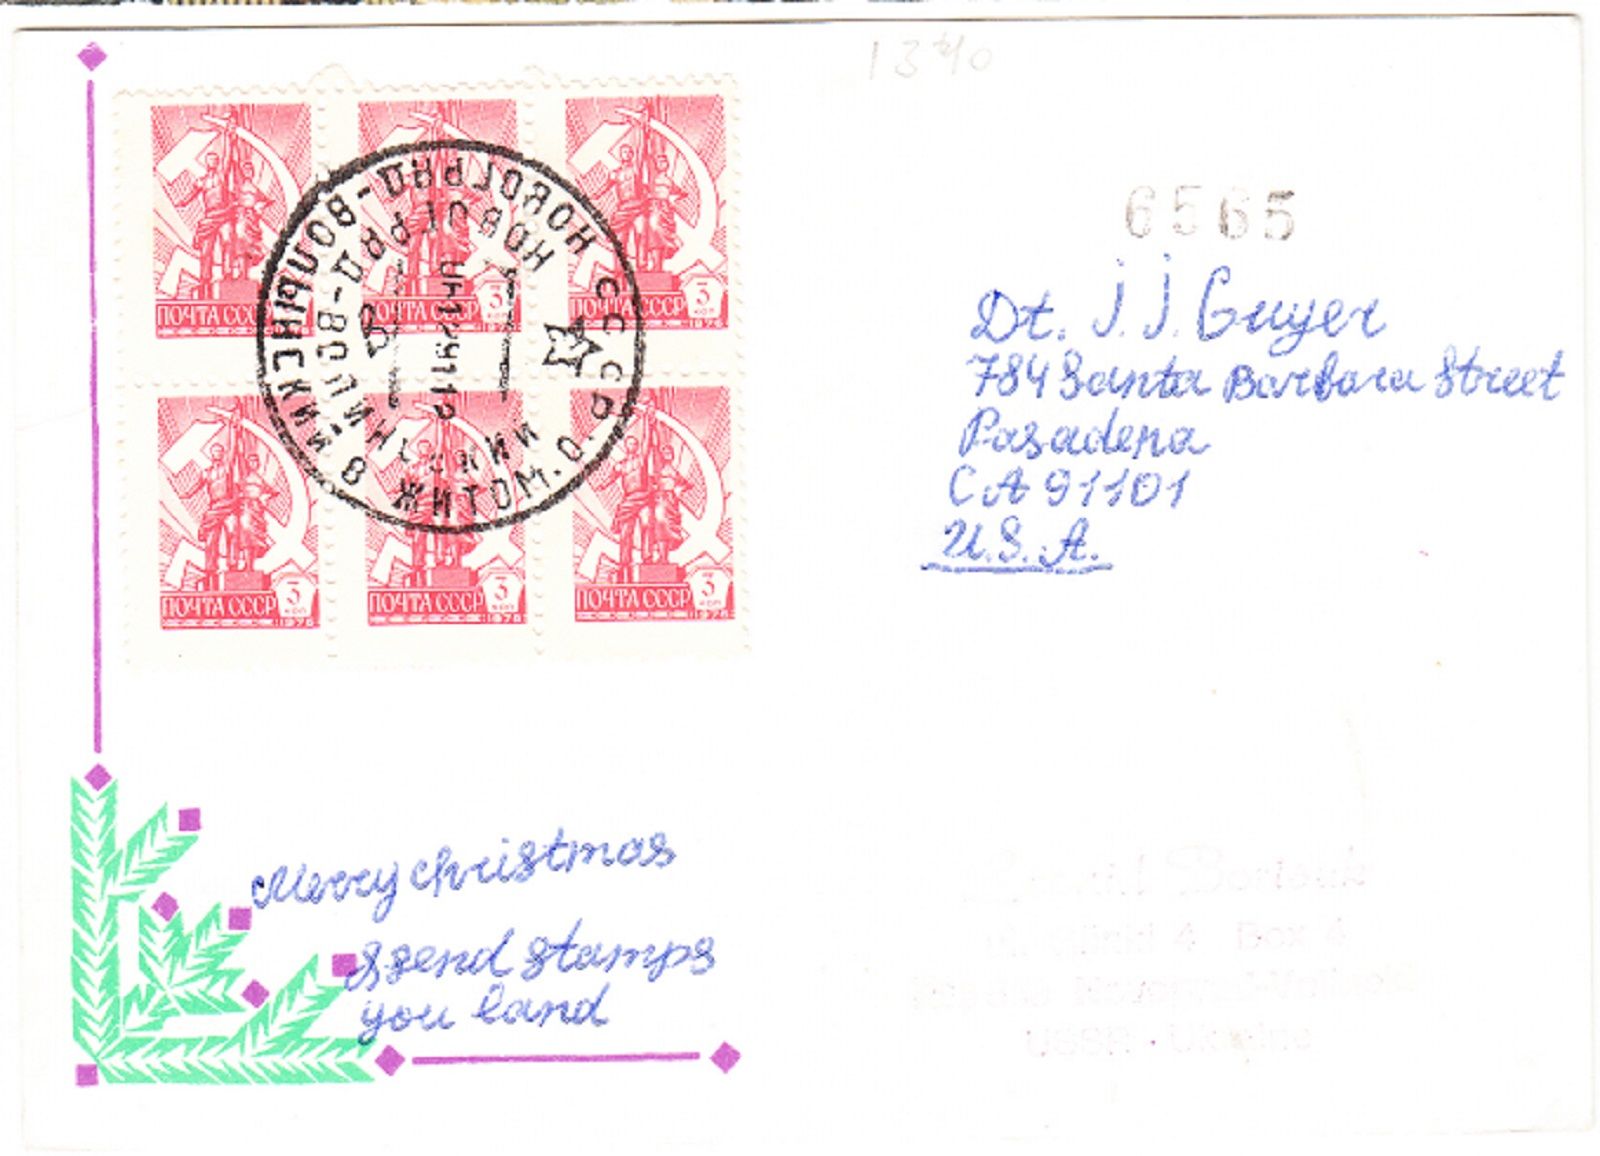 1340
ПОЧТА СССР 3 1976
ПОЧТА СССР 3 КОП 1976
ПОЧТА СССР 3 КОП 1976
ПОЧТА СССР 3 КОП 1976
ПОЧТА СССР 3 КОП 1976
ПОЧТА СССР 3 КОП 1976
НОВОГРАД-ВОЛЫНСКИЙ 8
ЖИТОМ. О. СССР
НОВОГРАД-ВОЛИНСЬКИЙ
6565
Dr. J. J. Guyer
784 Santa Barbara Street
Pasadena
CA 91101
U.S.A.
Merry christmas
Ssend stamps
you land
Box 4
USSR